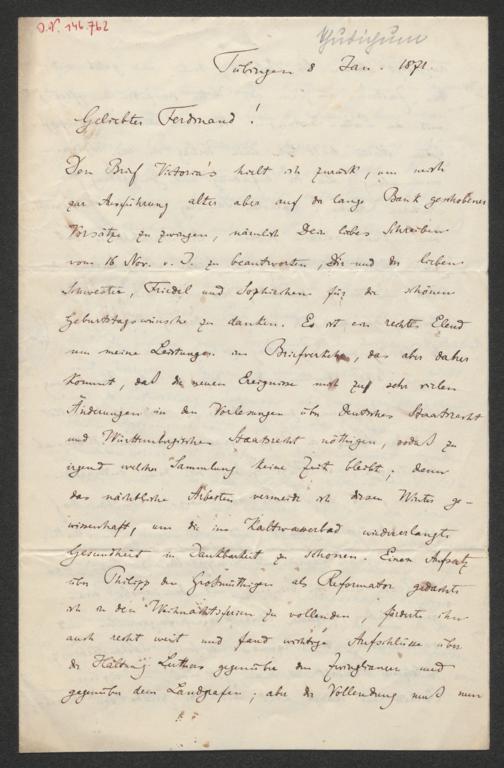 O.N. 146.762
Thudichum
Tübingen 8 Jan. 1871.
Geliebter Ferdinand!
Den Brief Victoria's hielt ich zurück, um mich
zur Ausführung alter aber auf die lange Bank geschobener
Vorsätze zu zwingen, nämlich Dein liebes Schreiben
vom 16 Nov. v. J. zu beantworten, Dir und der lieben
Schwester, Friedel und Sophiechen für die schönen
Geburtstagswünsche zu danken. Es ist ein rechtes Elend
um meine Leistungen im Briefverkehr, das aber daher
kommt, daß die neuen Ereignisse mich zu sehr vielen
Änderungen in den Vorlesungen über Deutsches Staatsrecht
und Württembergisches Staatsrecht nöthigen, sodaß zu
irgend welcher Sammlung keine Zeit bleibt; denn
das nächtliche Arbeiten vermeide ich diesen Winter ge-
wissenhaft, um die im Kaltwasserbad wiedererlangte
Gesundheit in Dankbarkeit zu schonen. Einen Aufsatz
über Philipp den Großmüthigen als Reformator gedachte
ich in den Weihnachtsferien zu vollenden, förderte ihn
auch recht weit und fand wichtige Aufschlüsse über
die Haltung Luthers gegenüber den Zwinglianern und
gegenüber dem Landgrafen; aber die Vollendung muß nun